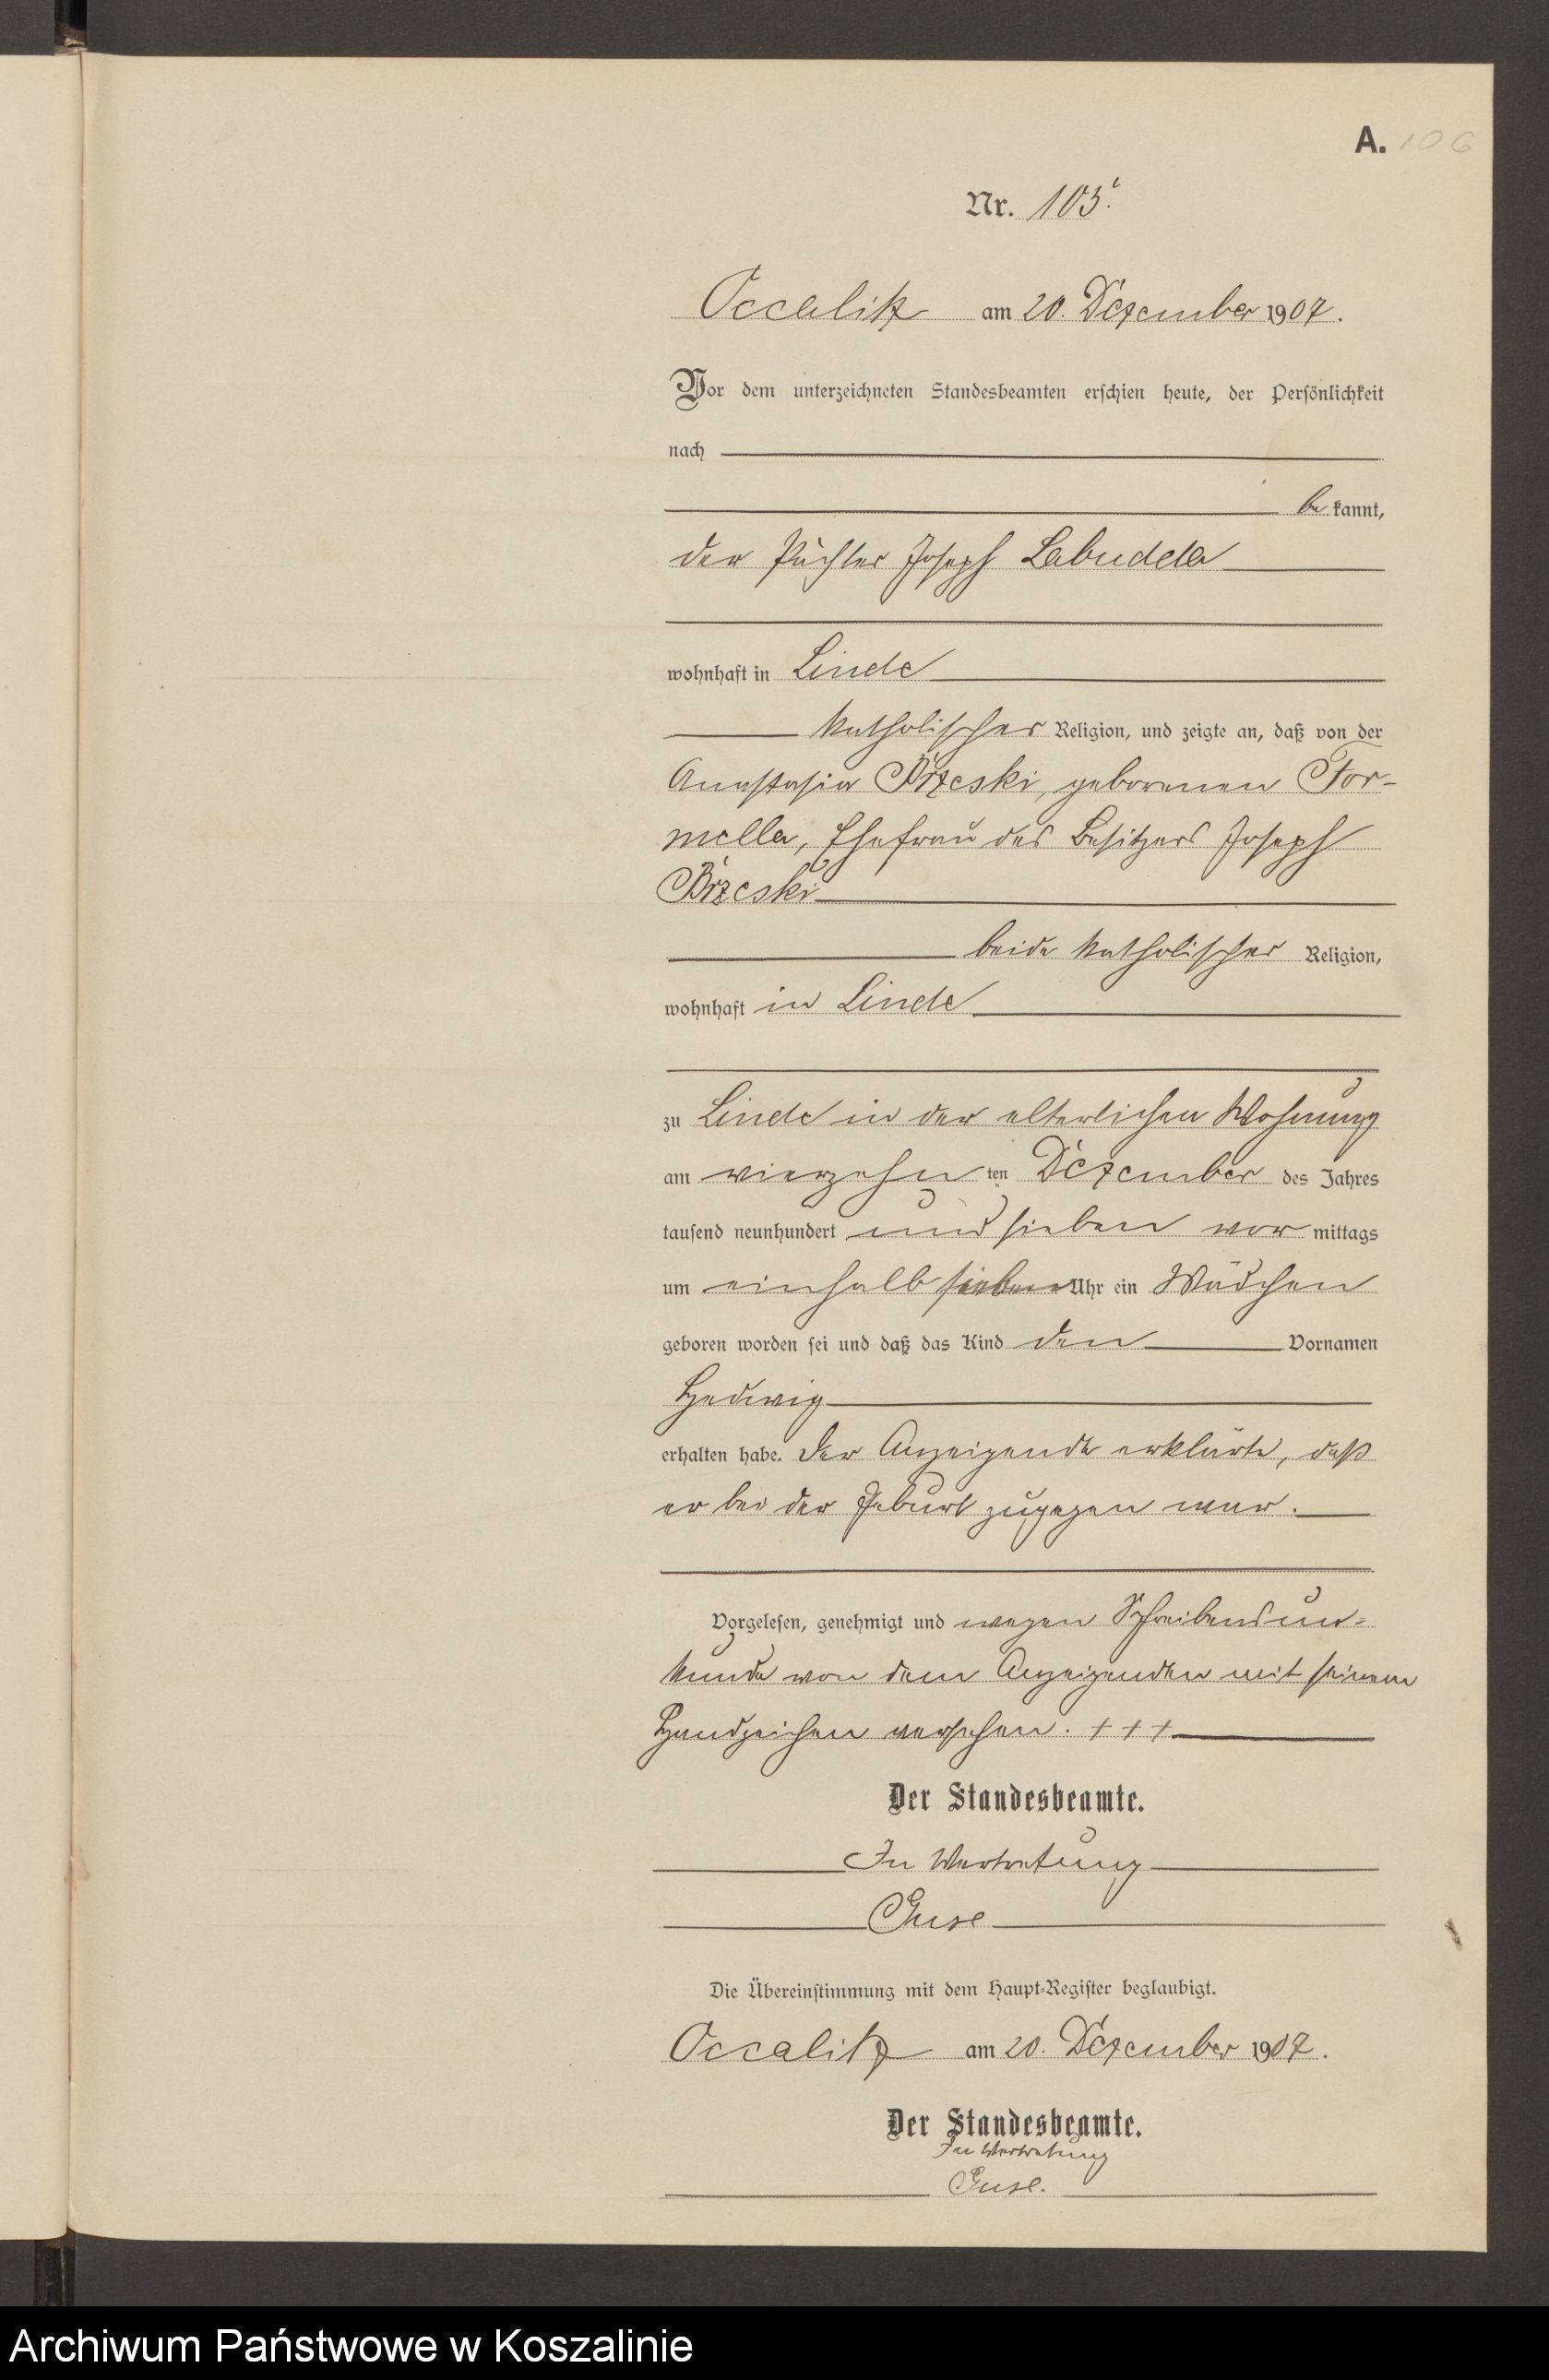 A. 106
Nr. 105.
Occalitz am 20. Dezember 1907.
Vor dem unterzeichneten Standesbeamten erschien heute, der Persönlichkeit
nach
be kannt,
der Pächter Joseph Labudda
wohnhaft in Linde
katholischer Religion, und zeigte an, daß von der
Anastasia Brzeski, geborenen For-
mella, Ehefrau des Besitzers Joseph
Brzeski
beide katholischer Religion,
wohnhaft in Linde
zu Linde in der elterlichen Wohnung
am vierzehn ten Dezember des Jahres
tausend neunhundert und sieben vor mittags
um einhalb sieben Uhr ein Mädchen
geboren worden sei und daß das Kind den Vornamen
Hedwig
erhalten habe. Der Anzeigende erklärte, daß
er bei der Geburt zugegen war.
Vorgelesen, genehmigt und wegen Schreibensun-
kunde von dem Anzeigenden mit seinem
Handzeichen versehen. +++
Der Standesbeamte.
In Vertretung
Guse
Die Übereinstimmung mit dem Haupt-Register beglaubigt.
Occalitz am 20. Dezember 1907.
Der Standesbeamte.
In Vertretung
Guse.
Archiwum Państwowe w Koszalinie